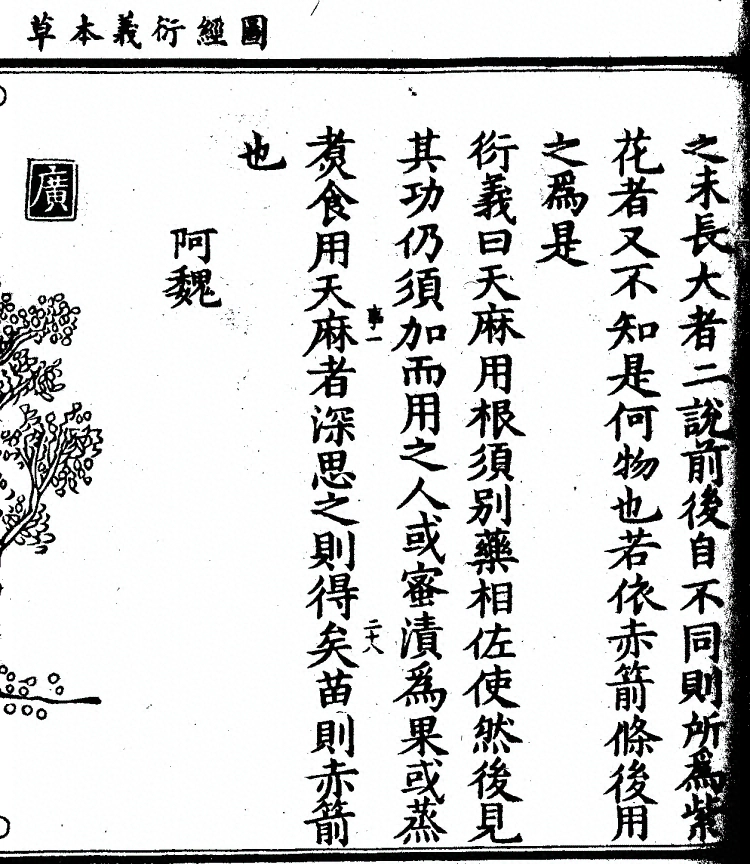 圖經衍義本草
之未長大者二說前後自不同則所爲紫
花者又不知是何物也若依赤箭條後用
之爲是
衍義曰天麻用根須别藥相佐使然後見
其功仍須加而用之人或蜜漬爲果或蒸
煑食用天麻者深思之則得矣苗則赤箭
也
事一
二十八
阿魏
廣